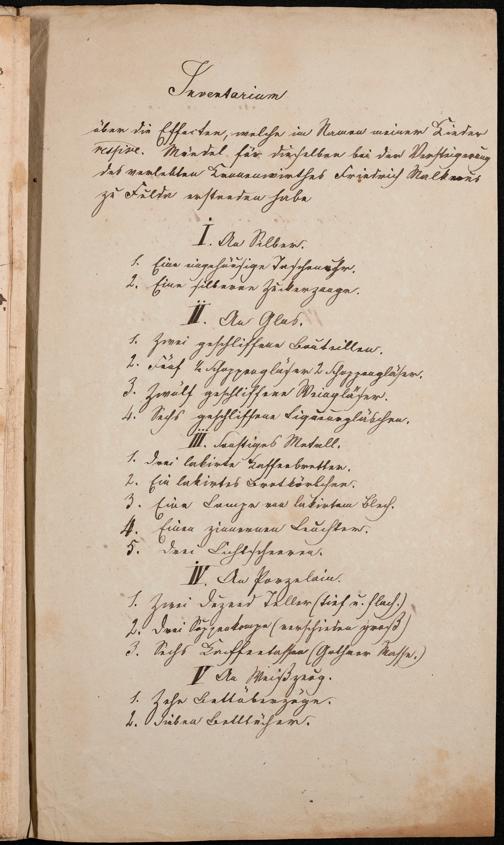 Inventarium
über die Effecten, welche im Namen meiner Kinder
respive. Mündel für dieselben bei der Versteigerung
des verlebten Kronenwirthes Friedrich Malkmus
zu Fulda erstreden habe
I. An Silber.
1. Eine eingehäusige Taschenuhr.
2. Eine silberne Zuckerzange.
II. An Glas.
1. Zwei geschliffene Bouteillen.
2. Fünf ½ Schoppengläser 2 Schoppengläser.
3. Zwölf geschliffene Weingläser.
4. Sechs geschliffene Liqueurgläschen.
III. Sonstiges Metall.
1. Drei lakirte Kaffeebretter.
2. Ein lakirtes Brotkörbchen.
3. Eine Lampe von lakirtem Blech.
4. Einen zinnernen Leuchter.
5. Drei Lichtscheeren.
IV. An Porzelain.
1. Zwei Dezend Teller (tief u. flach.)
2. Drei Suppenkompe (verschieden groß)
3. Sechs Kaffeetassen (Gothaer Masse.)
V An Weißzeug.
1. Zehn Bettüberzüge.
2. Sieben Betttücher.